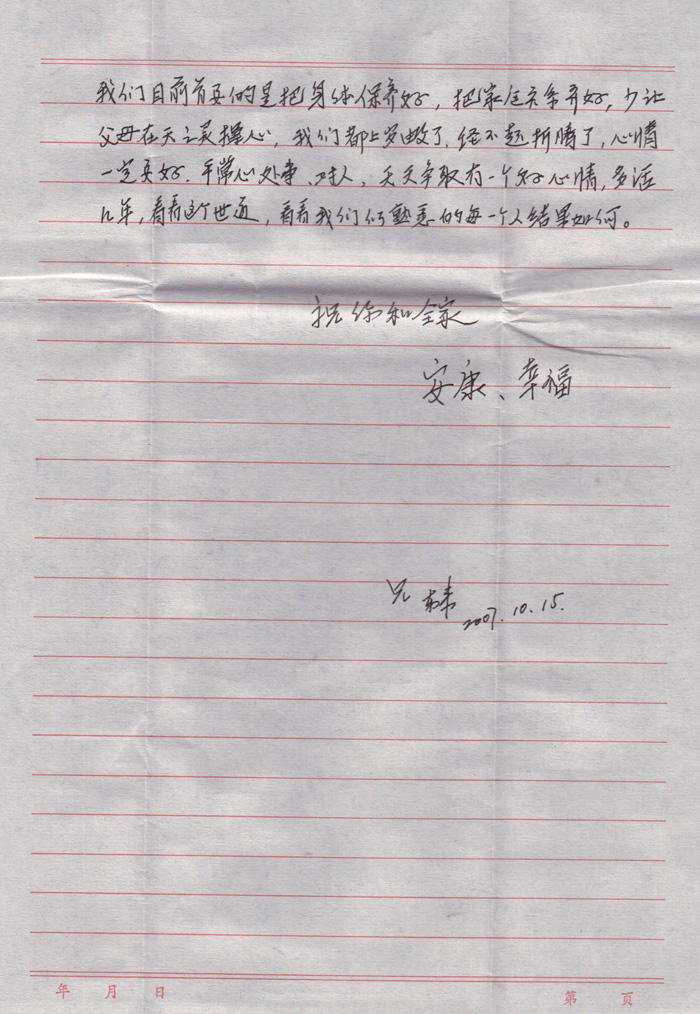 我们目前首要的是把身体保养好，把家庭关系弄好，少让
父母在天之灵操心，我们都上岁数了，经不起折腾了，心情
一定要好．平常心处事、对人，天天争取有一个好心情，多活
几年，看看这个世道，看看我们所熟悉的每一个人结果如何。
祝你和全家
安康、幸福
兄
2007.10.15.
年 月 日 第 页